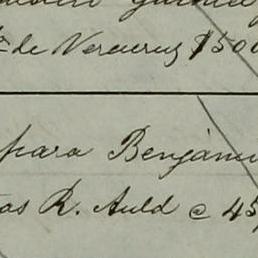 de Veracruz $500
para Benjami
tas R. Auld @ 45